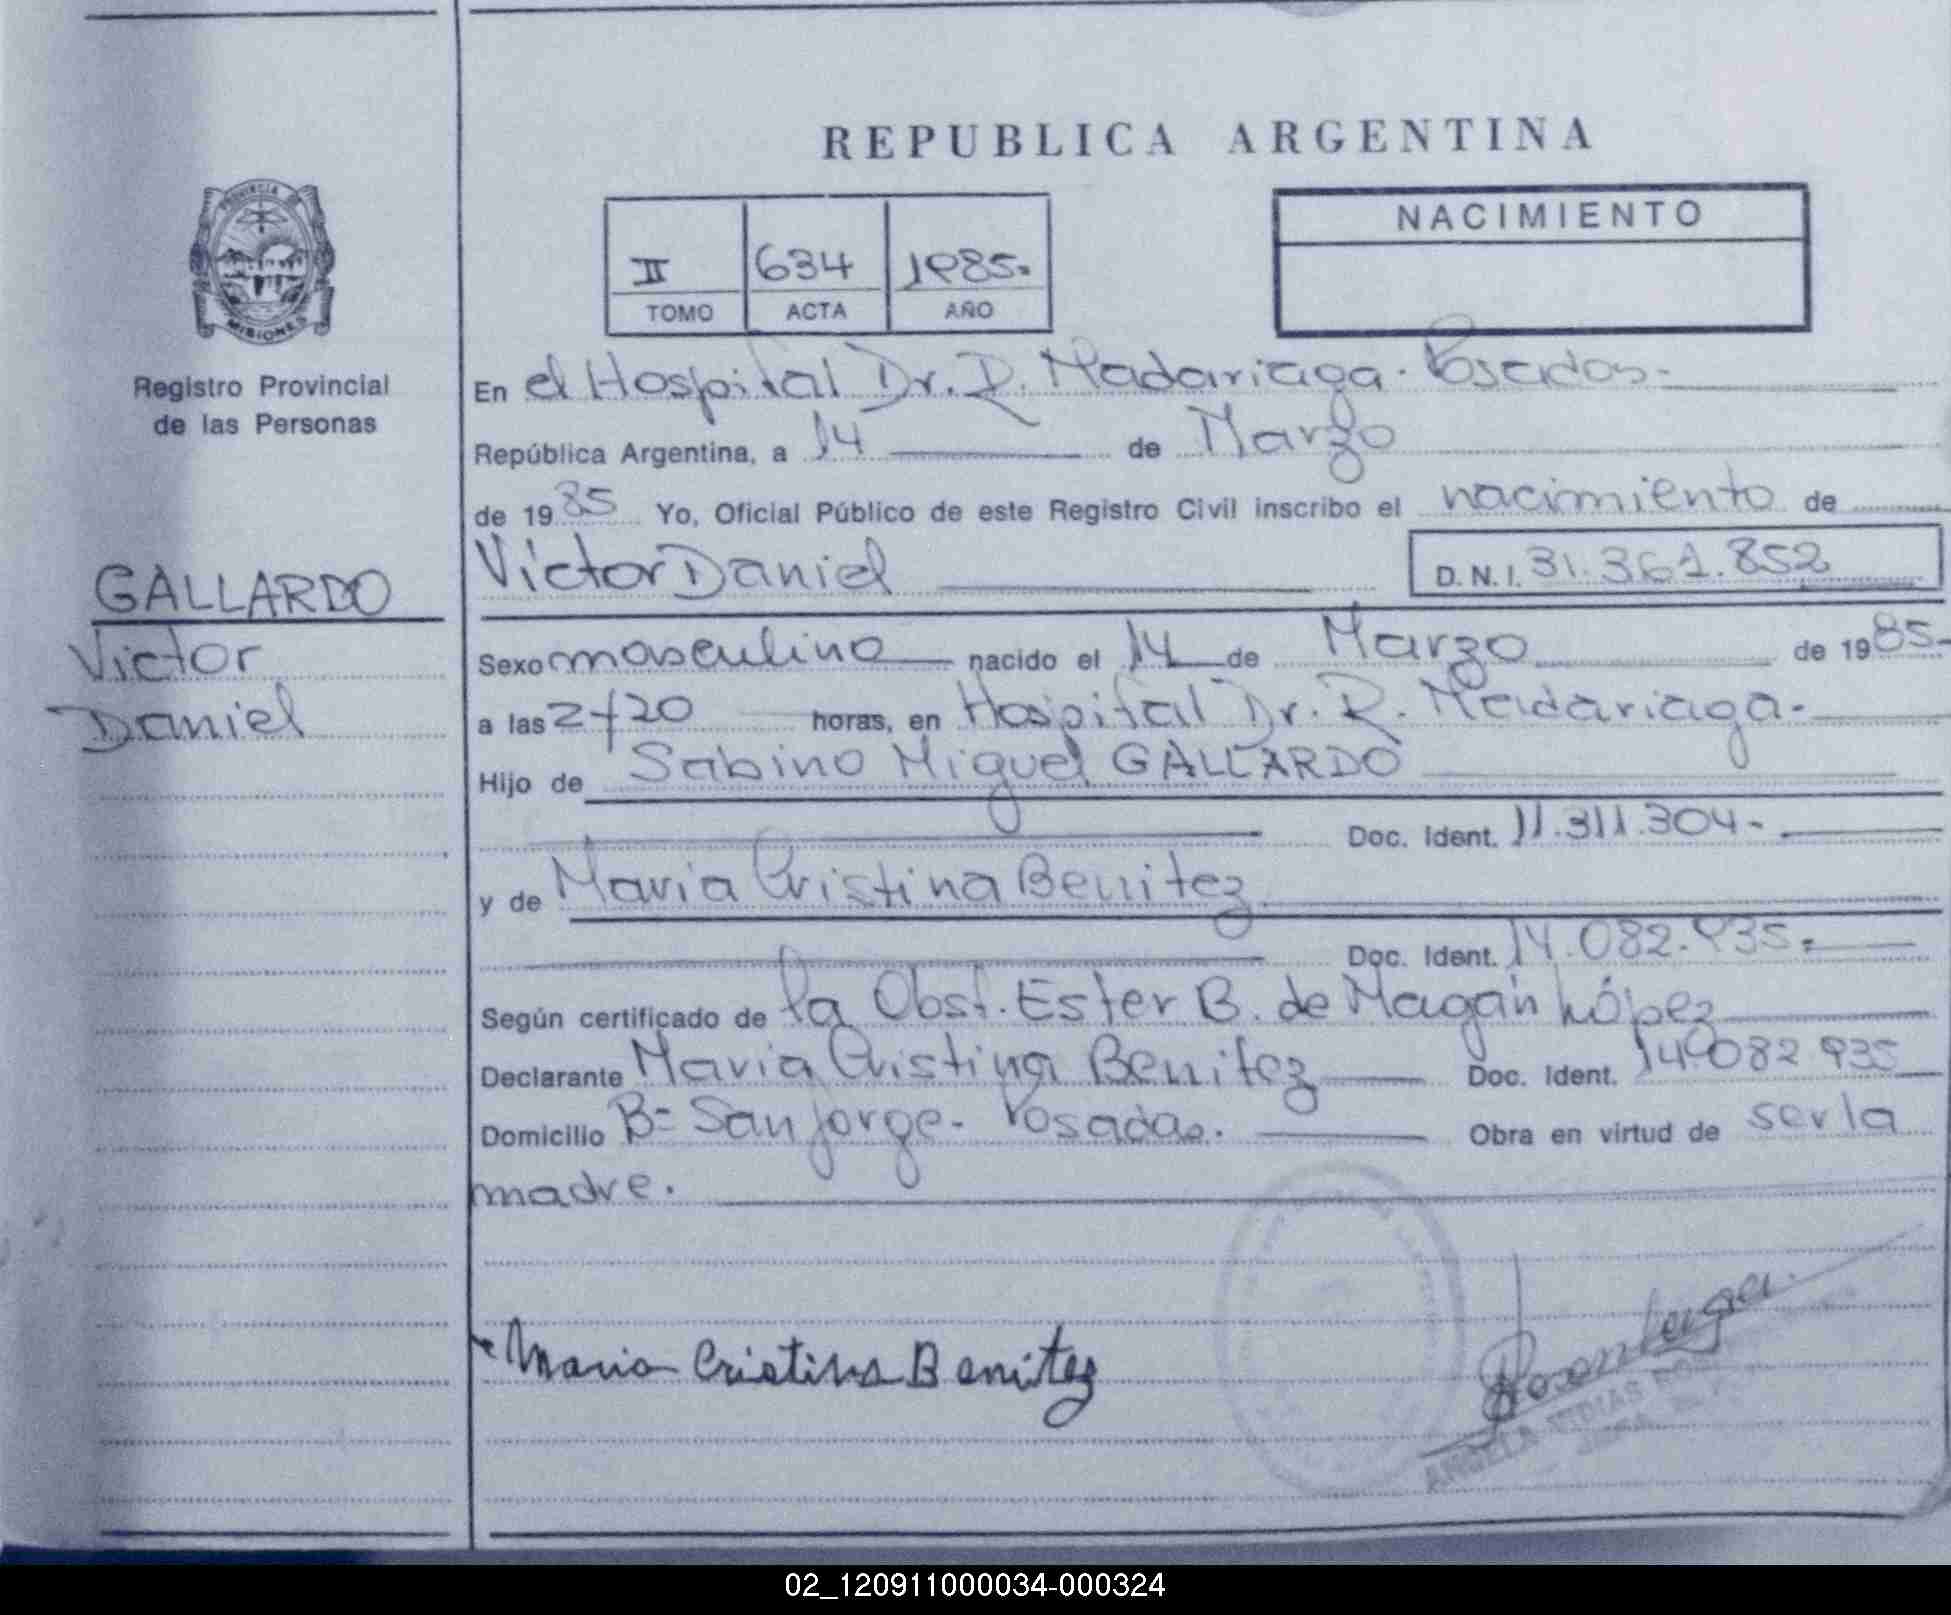 REPUBLICA ARGENTINA
PROVINCIA
MISIONES
Registro Provincial
de las Personas
II 634 1985.
TOMO ACTA AÑO
NACIMIENTO
En el Hospital Dr. R. Madariaga. Posadas.
República Argentina, a 14 de Marzo
de 1985 Yo, Oficial Público de este Registro Civil inscribo el nacimiento de
Victor Daniel D.N.I. 31.361.852
GALLARDO
Victor
Daniel
Sexo masculino nacido el 14 de Marzo de 1985.
a las 2,20 horas, en Hospital Dr. R. Madariaga.
Hijo de Sabino Miguel GALLARDO
Doc. Ident. 11.311.304-
y de Maria Cristina Benitez
Doc. Ident. 14.082.935.
Según certificado de la Obst. Ester B. de Magán López
Declarante Maria Cristina Benitez Doc. Ident. 14.082.935
Domicilio B= San Jorge. Posadas. Obra en virtud de ser la
madre.
Maria Cristina Benitez
ANGELA
02_120911000034-000324